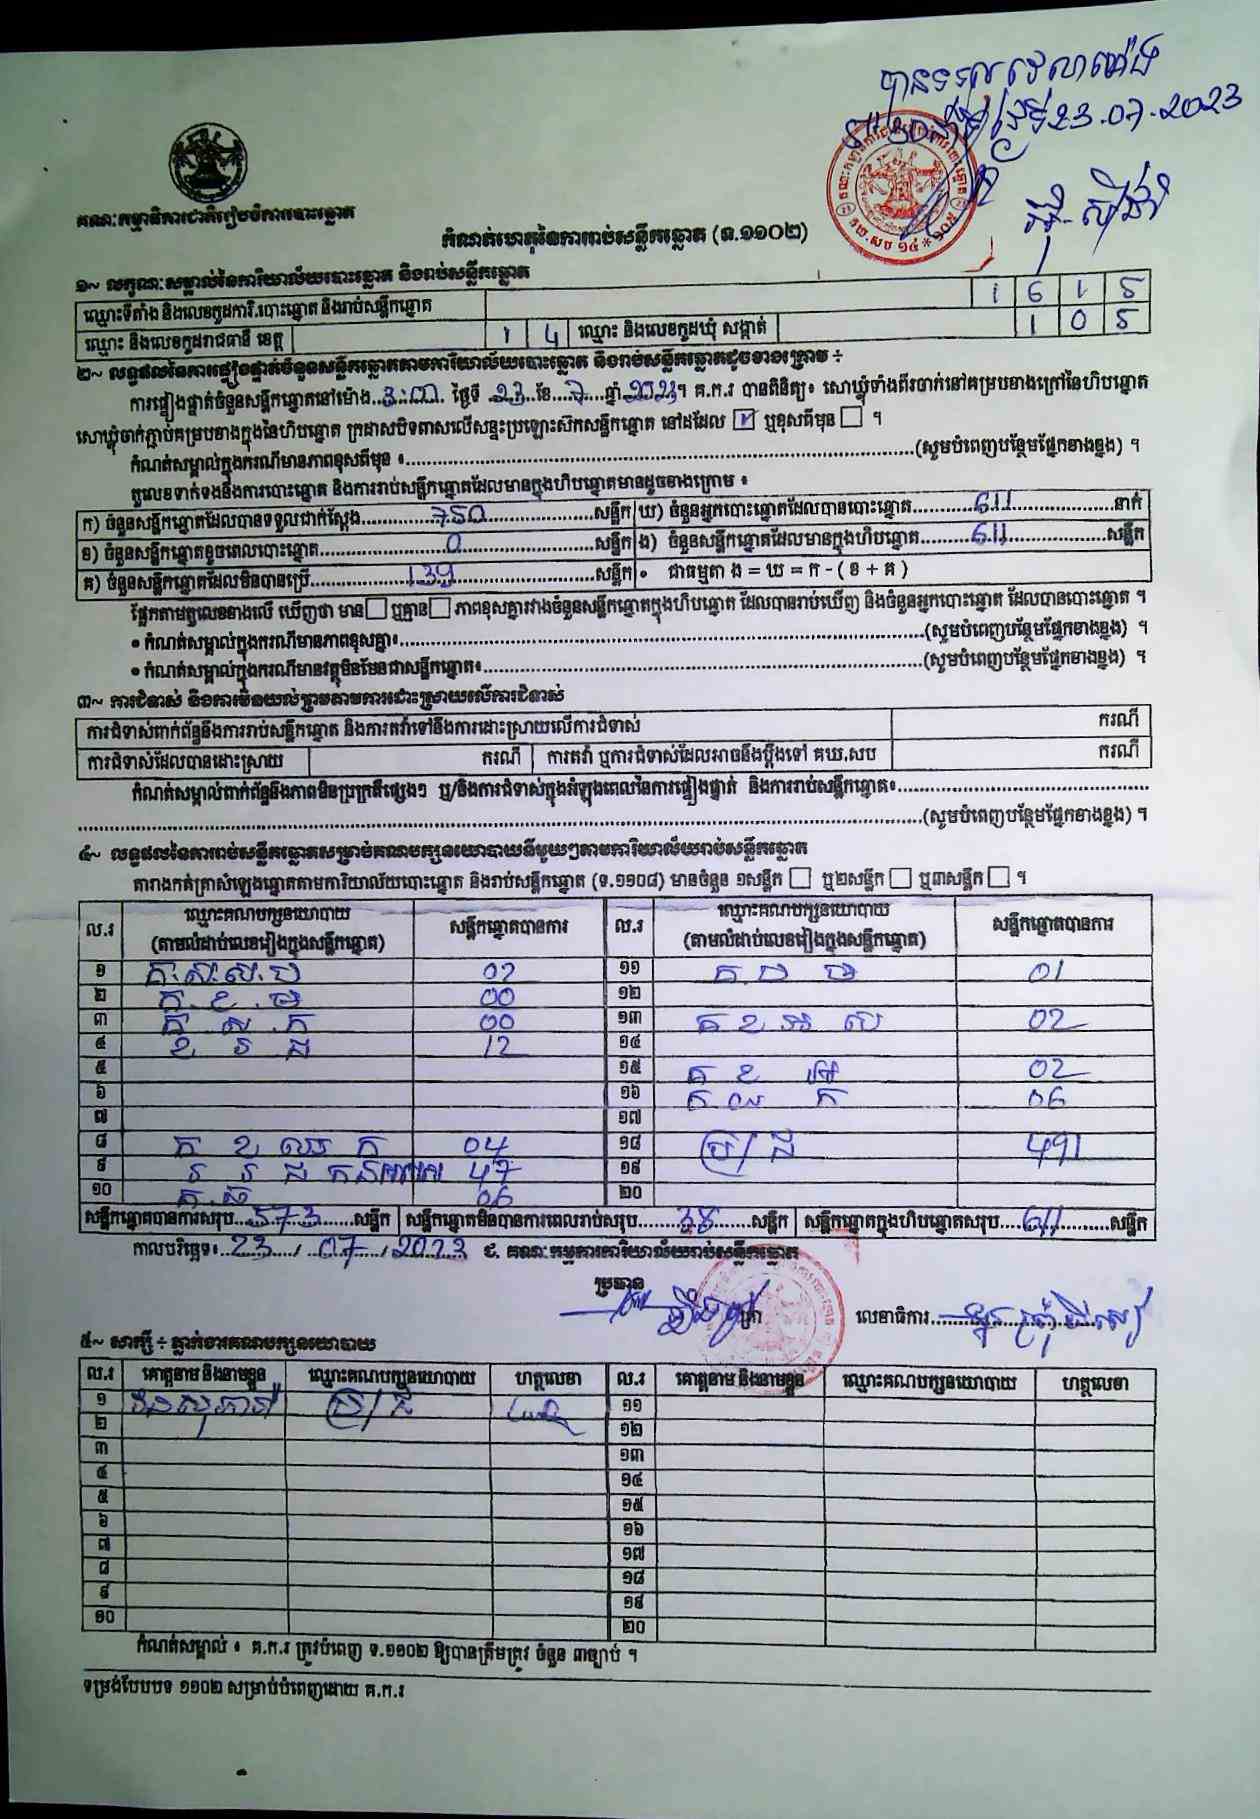 បានទទួលវេលាម៉ោង
ថ្ងៃទី23.07.2023
គណៈកម្មាធិការជាតិរៀបចំការបោះឆ្នោត
កំណត់ហេតុនៃការរាប់សន្លឹកឆ្នោត (ទ.១១០២)
១~ លក្ខណៈសម្គាល់នៃការិយាល័យបោះឆ្នោត និងរាប់សន្លឹកឆ្នោត
ឈ្មោះទីតាំង និងលេខកូដការិ.បោះឆ្នោត និងរាប់សន្លឹកឆ្នោត 1 6 1 5
ឈ្មោះ និងលេខកូដរាជធានី ខេត្ត 1 4 ឈ្មោះ និងលេខកូដឃុំ សង្កាត់ 1 0 5
២~ លទ្ធផលនៃការផ្ទៀងផ្ទាត់ចំនួនសន្លឹកឆ្នោតតាមការិយាល័យបោះឆ្នោត និងរាប់សន្លឹកឆ្នោតដូចខាងក្រោម ÷
ការផ្ទៀងផ្ទាត់ចំនួនសន្លឹកឆ្នោតនៅម៉ោង..3:00. ថ្ងៃទី .23..ខែ....7....ឆ្នាំ.2023។ គ.ក.រ បានពិនិត្យ៖ សោឃ្លុំទាំងពីរចាក់នៅគម្របខាងក្រៅនៃហិបឆ្នោត
សោឃ្លុំចាក់ភ្ជាប់គម្របខាងក្នុងនៃហិបឆ្នោត ក្រដាសបិទពាសលើសន្ទះប្រឡោះស៊កសន្លឹកឆ្នោត នៅដដែល ☑ ឬខុសពីមុន ☐ ។
កំណត់សម្គាល់ក្នុងករណីមានភាពខុសពីមុន ៖..........(សូមបំពេញបន្ថែមផ្នែកខាងខ្នង) ។
តួលេខទាក់ទងនឹងការបោះឆ្នោត និងការរាប់សន្លឹកឆ្នោតដែលមានក្នុងហិបឆ្នោតមានដូចខាងក្រោម ៖
ក) ចំនួនសន្លឹកឆ្នោតដែលបានទទួលជាក់ស្តែង..........750..........សន្លឹក ឃ) ចំនួនអ្នកបោះឆ្នោតដែលបានបោះឆ្នោត..........611..........នាក់
ខ) ចំនួនសន្លឹកឆ្នោតខូចពេលបោះឆ្នោត..........0..........សន្លឹក ង) ចំនួនសន្លឹកឆ្នោតដែលមានក្នុងហិបឆ្នោត..........611..........សន្លឹក
គ) ចំនួនសន្លឹកឆ្នោតដែលមិនបានប្រើ..........139..........សន្លឹក • ជាធម្មតា ង = ឃ = ក - ( ខ + គ )
ផ្អែកតាមតួលេខខាងលើ ឃើញថា មាន☐ ឬគ្មាន☐ ភាពខុសគ្នារវាងចំនួនសន្លឹកឆ្នោតក្នុងហិបឆ្នោត ដែលបានរាប់ឃើញ និងចំនួនអ្នកបោះឆ្នោត ដែលបានបោះឆ្នោត ។
• កំណត់សម្គាល់ក្នុងករណីមានភាពខុសគ្នា៖..........(សូមបំពេញបន្ថែមផ្នែកខាងខ្នង) ។
• កំណត់សម្គាល់ក្នុងករណីមានវត្ថុមិនមែនជាសន្លឹកឆ្នោត៖..........(សូមបំពេញបន្ថែមផ្នែកខាងខ្នង) ។
៣~ ការជំទាស់ និងការមិនយល់ព្រមតាមការដោះស្រាយលើការជំទាស់
ការជំទាស់ពាក់ព័ន្ធនឹងការរាប់សន្លឹកឆ្នោត និងការតវ៉ាទៅនឹងការដោះស្រាយលើការជំទាស់ ករណី
ការជំទាស់ដែលបានដោះស្រាយ ករណី ការតវ៉ា ឬការជំទាស់ដែលអាចនឹងប្តឹងទៅ គឃ.សប ករណី
កំណត់សម្គាល់ពាក់ព័ន្ធនឹងភាពមិនប្រក្រតីផ្សេងៗ ឬ/និងការជំទាស់ក្នុងអំឡុងពេលនៃការផ្ទៀងផ្ទាត់ និងការរាប់សន្លឹកឆ្នោត៖..........
..........(សូមបំពេញបន្ថែមផ្នែកខាងខ្នង) ។
៤~ លទ្ធផលនៃការរាប់សន្លឹកឆ្នោតសម្រាប់គណបក្សនយោបាយនីមួយៗតាមការិយាល័យរាប់សន្លឹកឆ្នោត
តារាងកត់ត្រាសំឡេងឆ្នោតតាមការិយាល័យបោះឆ្នោត និងរាប់សន្លឹកឆ្នោត (ទ.១១០៨) មានចំនួន ១សន្លឹក ☐ ឬ២សន្លឹក ☐ ឬ៣សន្លឹក ☐ ។
ល.រ ឈ្មោះគណបក្សនយោបាយ សន្លឹកឆ្នោតបានការ ល.រ ឈ្មោះគណបក្សនយោបាយ សន្លឹកឆ្នោតបានការ
(តាមលំដាប់លេខរៀងក្នុងសន្លឹកឆ្នោត) (តាមលំដាប់លេខរៀងក្នុងសន្លឹកឆ្នោត)
១ គ.ស.ស.ប 02 ១១ គ ប ធ 01
២ គ.ខ.ធ 00 ១២
៣ គ ស ក 00 ១៣ គ ខ អ ស 02
៤ ខ រ ជ 12 ១៤
៥ ១៥ គ ខ 02
៦ ១៦ 06
៧ ១៧
៨ គ ខ ឈ ក 04 ១៨ ប្រ/ជ 491
៩ 47 ១៩
១០ គ.ធ 06 ២០
សន្លឹកឆ្នោតបានការសរុប...573......សន្លឹក សន្លឹកឆ្នោតមិនបានការពេលរាប់សរុប........38......សន្លឹក សន្លឹកឆ្នោតក្នុងហិបឆ្នោតសរុប....611..........សន្លឹក
កាលបរិច្ឆេទ៖..23../..07../.2023.. ជ. គណៈកម្មការការិយាល័យរាប់សន្លឹកឆ្នោត
ប្រធាន
លេខាធិការ
៥~ សាក្សី ÷ ភ្នាក់ងារគណបក្សនយោបាយ
ល.រ គោត្តនាម និងនាមខ្លួន ឈ្មោះគណបក្សនយោបាយ ហត្ថលេខា ល.រ គោត្តនាម និងនាមខ្លួន ឈ្មោះគណបក្សនយោបាយ ហត្ថលេខា
១ ប្រ/ជ ១១
២ ១២
៣ ១៣
៤ ១៤
៥ ១៥
៦ ១៦
៧ ១៧
៨ ១៨
៩ ១៩
១០ ២០
កំណត់សម្គាល់ ៖ គ.ក.រ ត្រូវបំពេញ ទ.១១០២ ឱ្យបានត្រឹមត្រូវ ចំនួន ៣ច្បាប់ ។
ទម្រង់បែបបទ ១១០២ សម្រាប់បំពេញដោយ គ.ក.រ